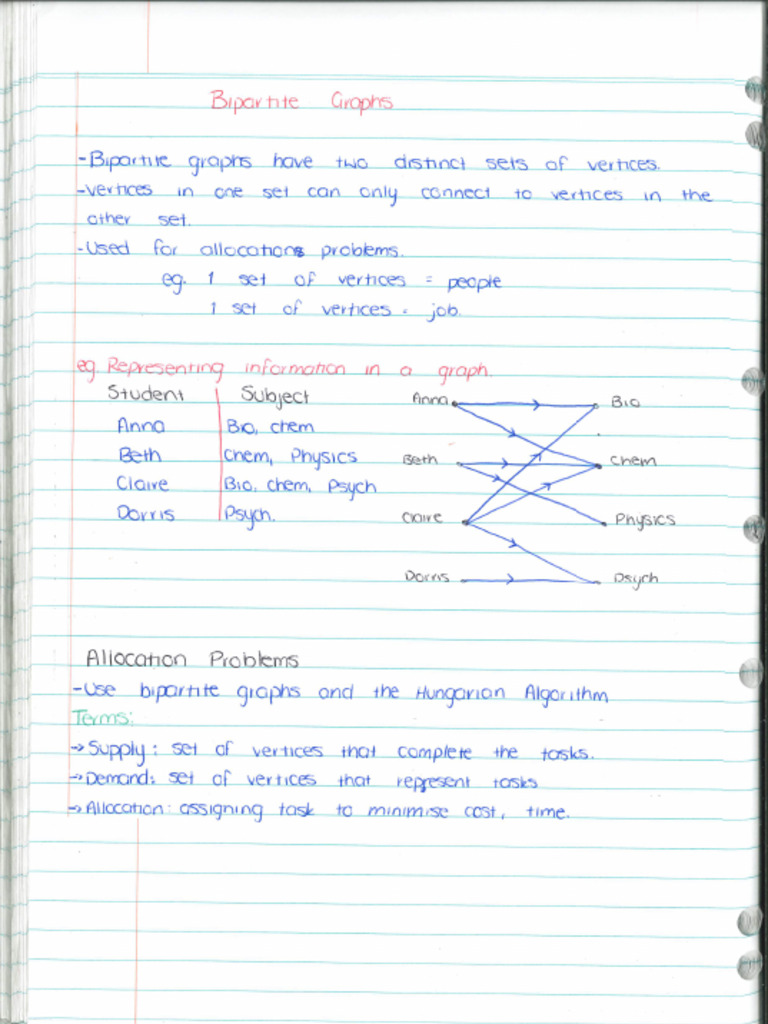 Bipartite Graphs
-Bipartite graphs have two distinct sets of vertices.
-vertices in one set can only connect to vertices in the
other set.
-Used for allocations problems.
eg. 1 set of vertices = people
1 set of vertices = job.
eg. Representing information in a graph.
Student Subject
Anna Bio, chem
Beth Chem, Physics
Claire Bio, chem, Psych
Dorris Psych.
Anna Bio
Beth Chem
Claire Physics
Dorris Psych
Allocation Problems
-Use bipartite graphs and the Hungarian Algorithm
Terms:
→Supply: set of vertices that complete the tasks.
→Demand: set of vertices that represent tasks
→Allocation: assigning task to minimise cost, time.